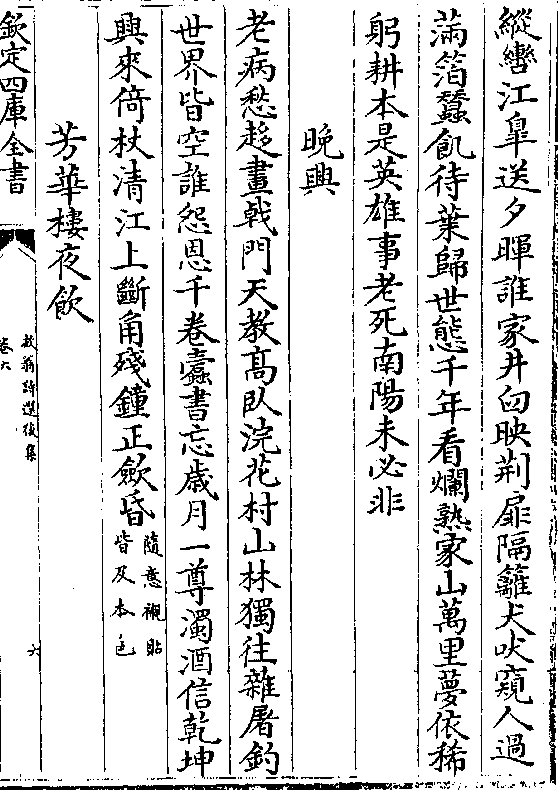 縱轡江臯送夕暉誰家井臼映荆扉隔籬犬吠窺人過
滿箔蠶飢待葉歸世態千年看爛熟家山萬里夢依稀
躬耕本是英雄事老死南陽未必非
晚興
老病愁趍畫戟門天教高臥浣花村山林獨往雜屠釣
世界皆空誰怨恩千卷蠹書忘歲月一尊濁酒信乾坤
興來倚杖清江上斷角殘鐘正歛昏
隨意襯貼
皆及本色
芳華樓夜飲
欽定四庫全書
放翁詩選後集
卷六
六